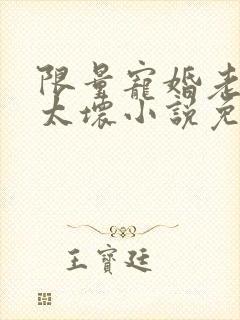 限量寵婚老
太壞小説免
王寶廷